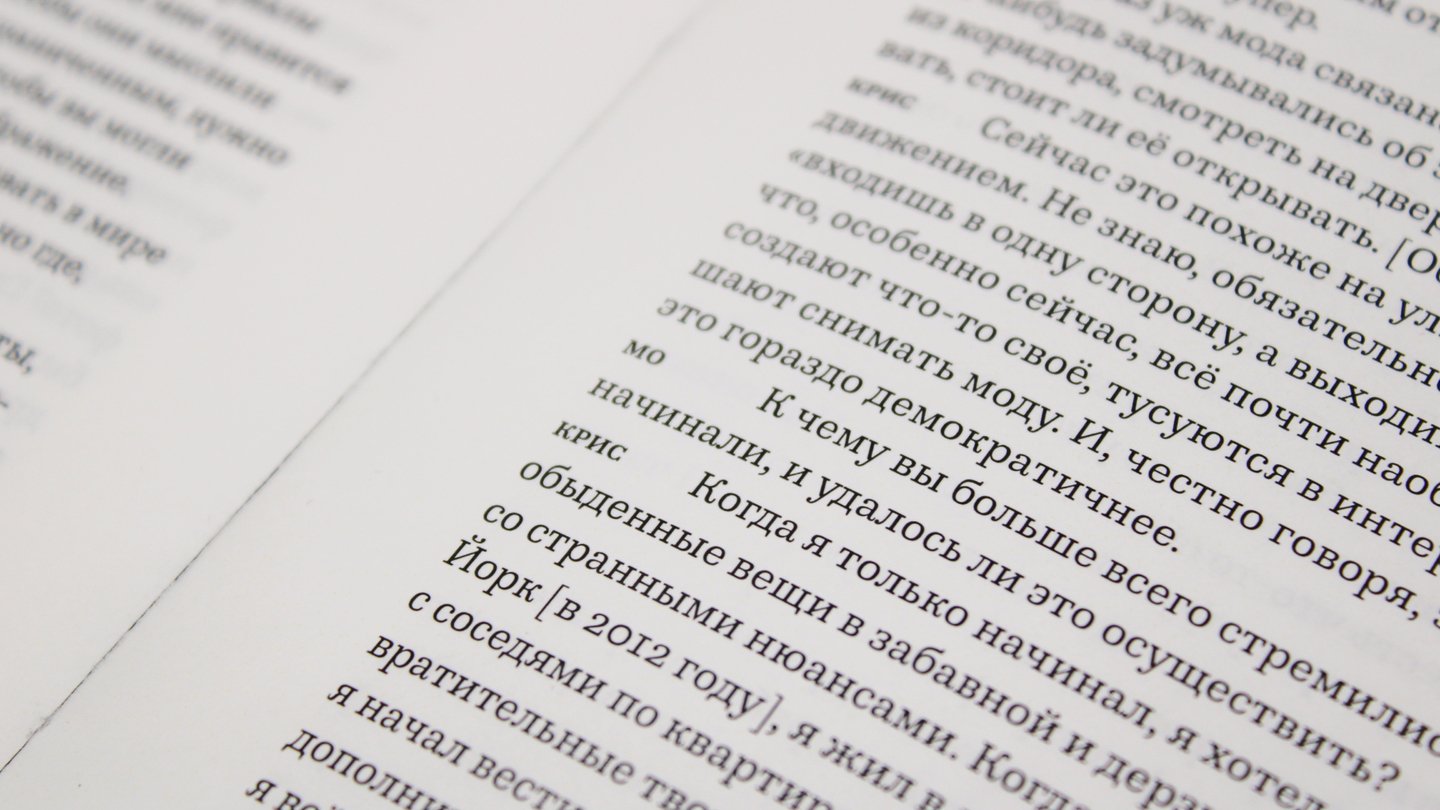 нравится
мыслили
раниченным, нужно
чтобы вы могли
бражение.
вать в мире
но где,
ты,
уж мода связан
нибудь задумывались об
из коридора, смотреть на двер
вать, стоит ли её открывать. [Об
крис Сейчас это похоже на ул
движением. Не знаю, обязательно
«входишь в одну сторону, а выходи
что, особенно сейчас, всё почти наоб
создают что-то своё, тусуются в интер
шают снимать моду. И, честно говоря, э
это гораздо демократичнее.
мо К чему вы больше всего стремилис
начинали, и удалось ли это осуществить?
крис Когда я только начинал, я хотел
обыденные вещи в забавной и дерз
со странными нюансами. Когда
Йорк [в 2012 году], я жил в
с соседями по квартир
вратительные тво
я начал вести
дополни
я во